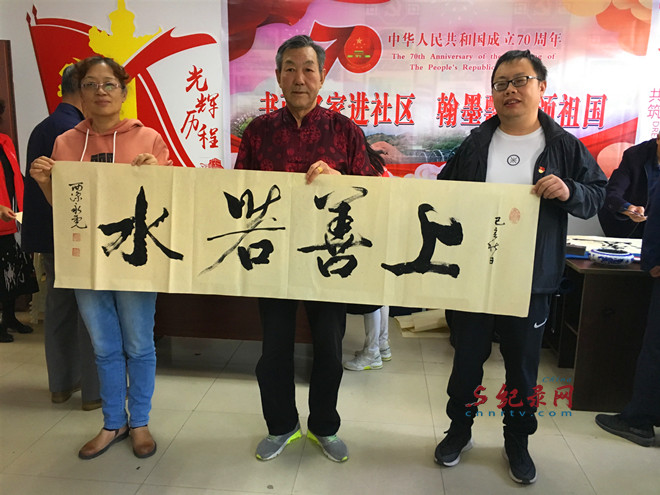 光辉
历程
中华人民共和国成立70周年
The 70th Anniversary of the
The People's Republic
家进社区 翰墨 祖国
共筑
己亥秋日
上善若水
纪录网
cnnrtv.com